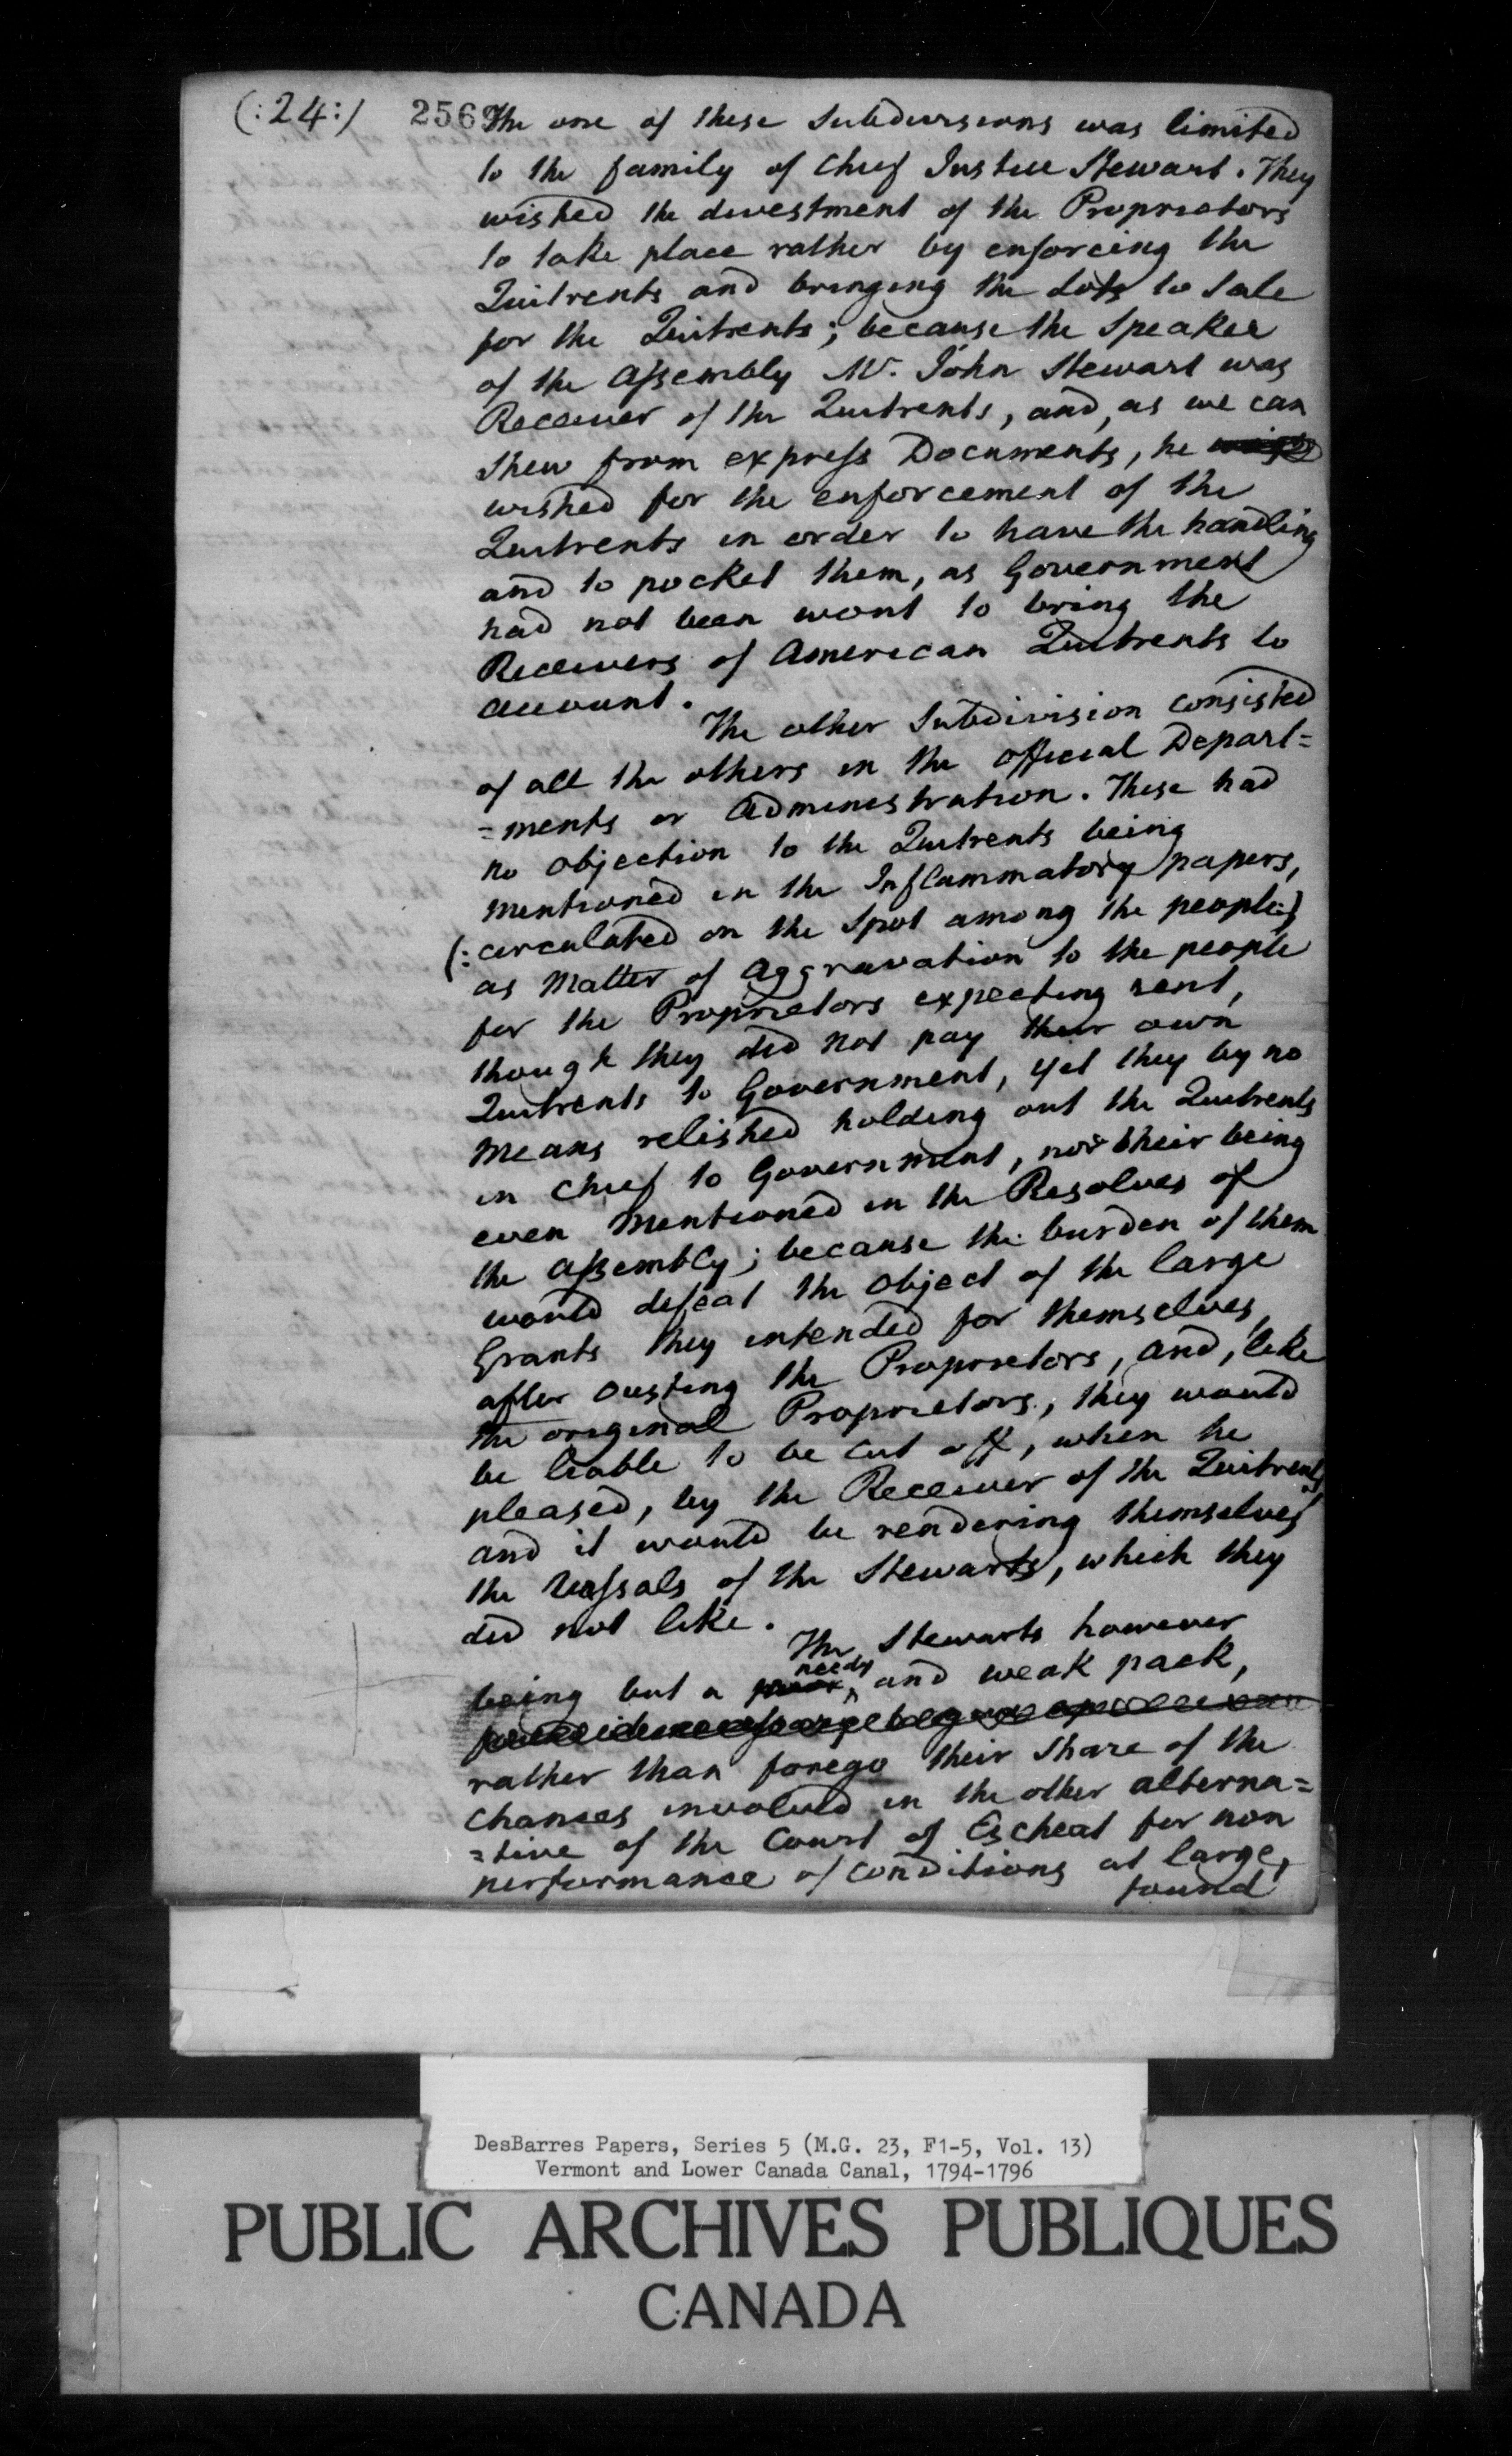 (:24:) 256
The one of these Subdivisions was limited
to the family of Chief Justice Stewart. They
wished the divestment of the Proprietors
to take place rather by enforcing the
Quitrents and bringing the Lots to Sale
for the Quitrents; because the Speaker
of the Assembly Mr. John Stewart was
Receiver of the Quitrents, and, as we can
shew from express Documents, he
wished for the enforcement of the
Quitrents in order to have the handling
and to pocket them, as Government
had not been wont to bring the
Receivers of American Quitrents to
account.
The other Subdivision consisted
of all the others in the official Depart=
=ments or Administration. These had
no objection to the Quitrents being
mentioned in the Inflammatory papers,
(: circulated on the Spot among the people:)
as Matter of Aggravation to the people
for the Proprietors expecting rent,
though they did not pay their own
Quitrents to Government, yet they by no
means relished holding out the Quitrents
in chief to Government, nor their being
even mentioned in the Resolves of
the Assembly; because the burden of them
would defeat the object of the large
Grants they intended for themselves,
after ousting the Proprietors, and, like
the original Proprietors, they would
be liable to be cut off, when he
pleased, by the Receiver of the Quitrents,
and it would be rendering themselves
the Vassals of the Stewarts, which they
did not like.
The Stewarts however
being but a needy and weak pack,
rather than forego their share of the
chances involved in the other alterna=
=tive of the Court of Escheat for non
performance of conditions at large,
found
DesBarres Papers, Series 5 (M.G. 23, F1-5, Vol. 13)
Vermont and Lower Canada Canal, 1794-1796
PUBLIC ARCHIVES PUBLIQUES
CANADA